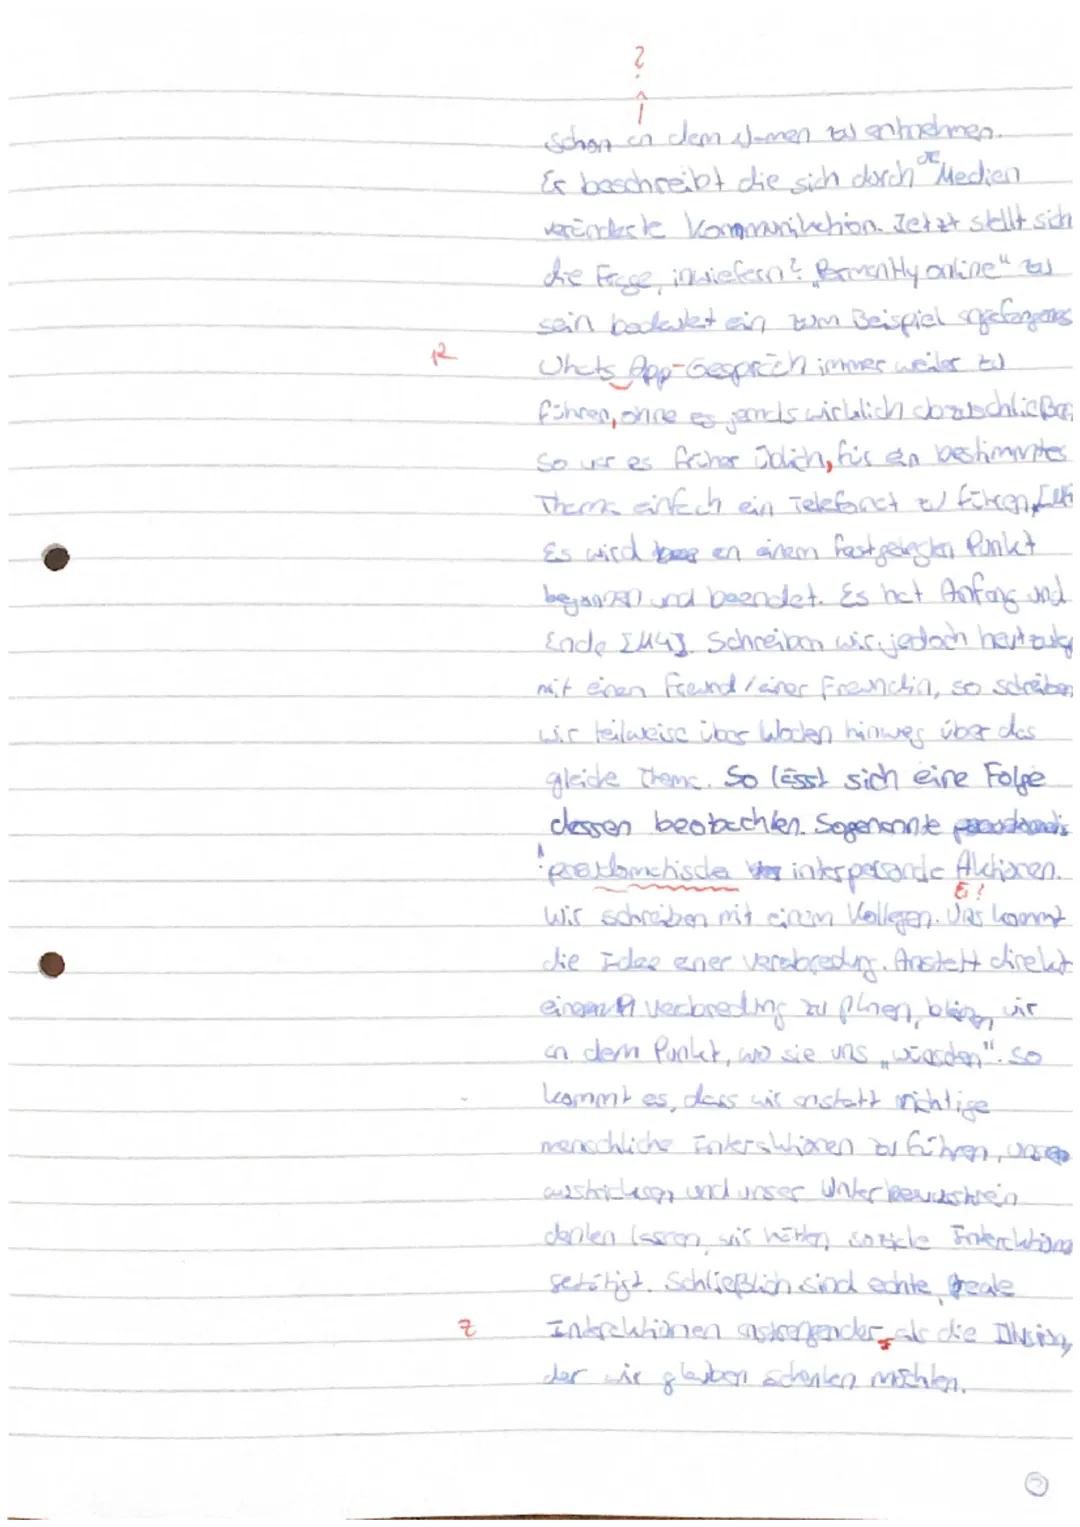 ?
schon an dem Namen zu entnehmen.
Er beschreibt die sich durch die Medien
veränderte Kommunikation. Jetzt stellt sich
die Frage, inwiefern? „Permently online" zu
sein bedeutet ein zum Beispiel angefangenes
R
Whats App-Gespräch immer weiter zu
führen, ohne es jemals wirklich abzuschließen
So war es früher üblich, für ein bestimmtes
Thema einfach ein Telefonat zu führen,
Es wird an einem festgelegten Punkt
begonnen und beendet. Es hat Anfang und
Ende [M4]. Schreiben wir jedoch heutzutage
mit einen Freund/einer Freundin, so schreiben
wir teilweise über Wochen hinweg über das
gleiche Thema. So lässt sich eine Folge
dessen beobachten. Sogenannte
interpersonale Aktionen.
Wir schreiben mit einem Kollegen. Uns kommt
die Idee einer Verabredung. Anstatt direkt
Verabredung zu planen, wir
an dem Punkt, wo sie uns „würden". So
kommt es, dass wir anstatt richtige
menschliche Interaktionen zu führen, unser
austricksen und unser Unterbewusstsein
denken lassen, wir hätten soziale Interaktionen
getätigt. Schließlich sind echte, reale
Z
Interaktionen anstrengender, als die Illusion,
der wir glauben schenken möchten.